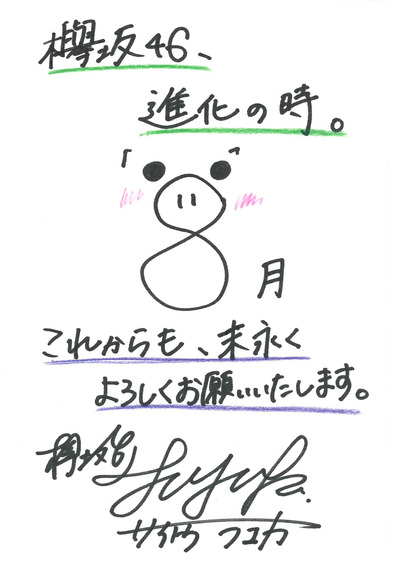 欅坂46、
進化の時。
8月
これからも、末永く
よろしくお願いいたします。
欅坂46 Fuyuka.
サイトウ フユカ